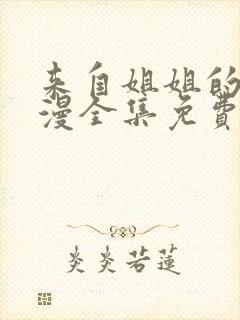 来自姐姐的
漫全集免費
炎炎若蓮